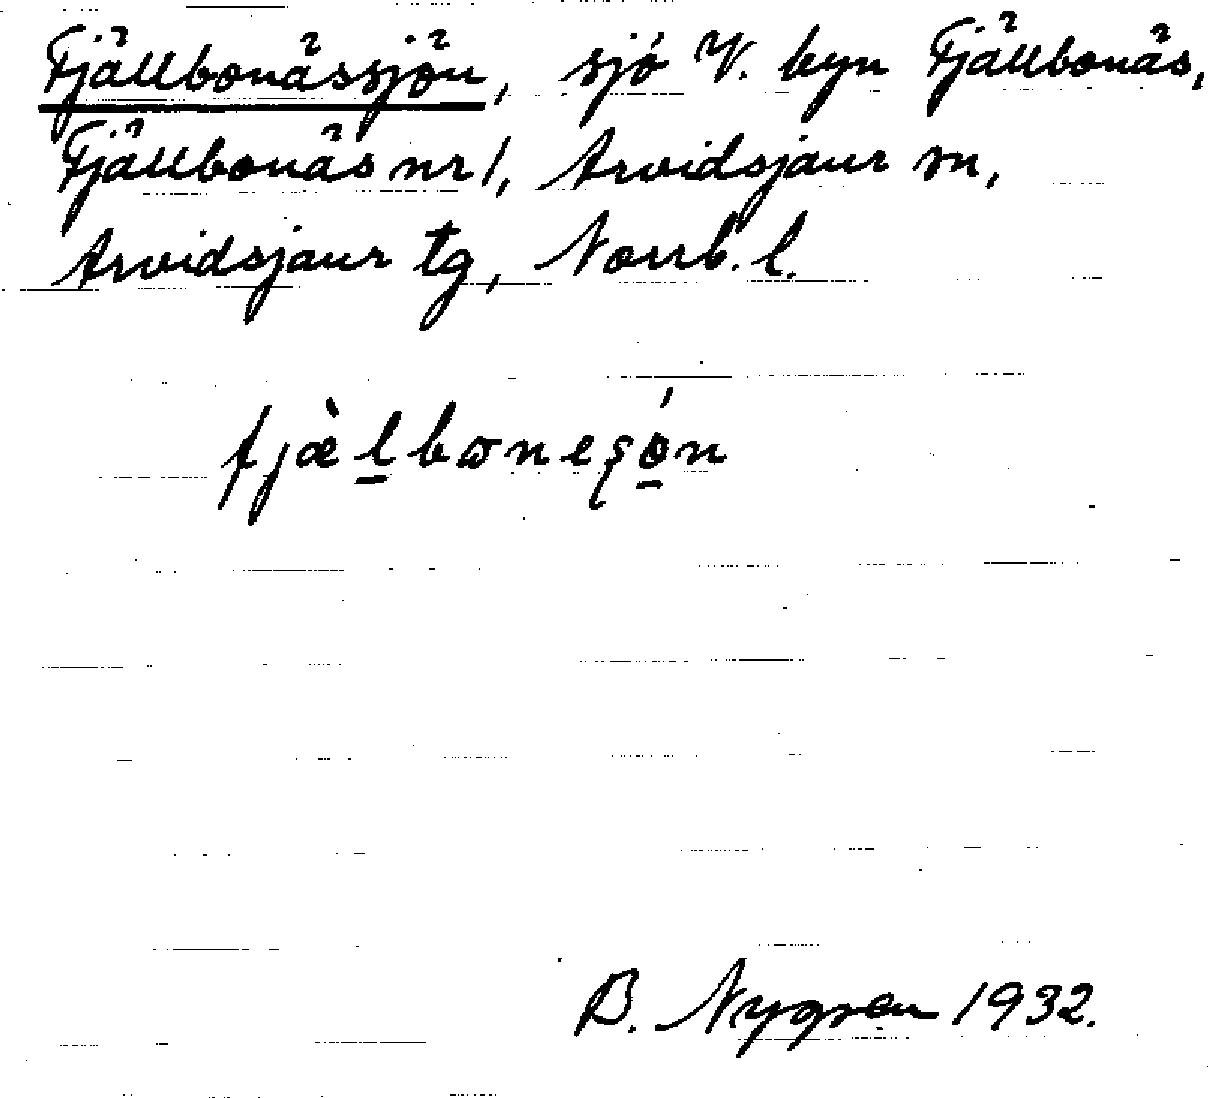 Fjällbonässjön, sjö V. byn Fjällbonäs,
Fjällbonäs nr 1, Arvidsjaur sn,
Arvidsjaur tg, Norrb. l.
fjæ̀l̠bωneʂó̠n
B. Nygren 1932.